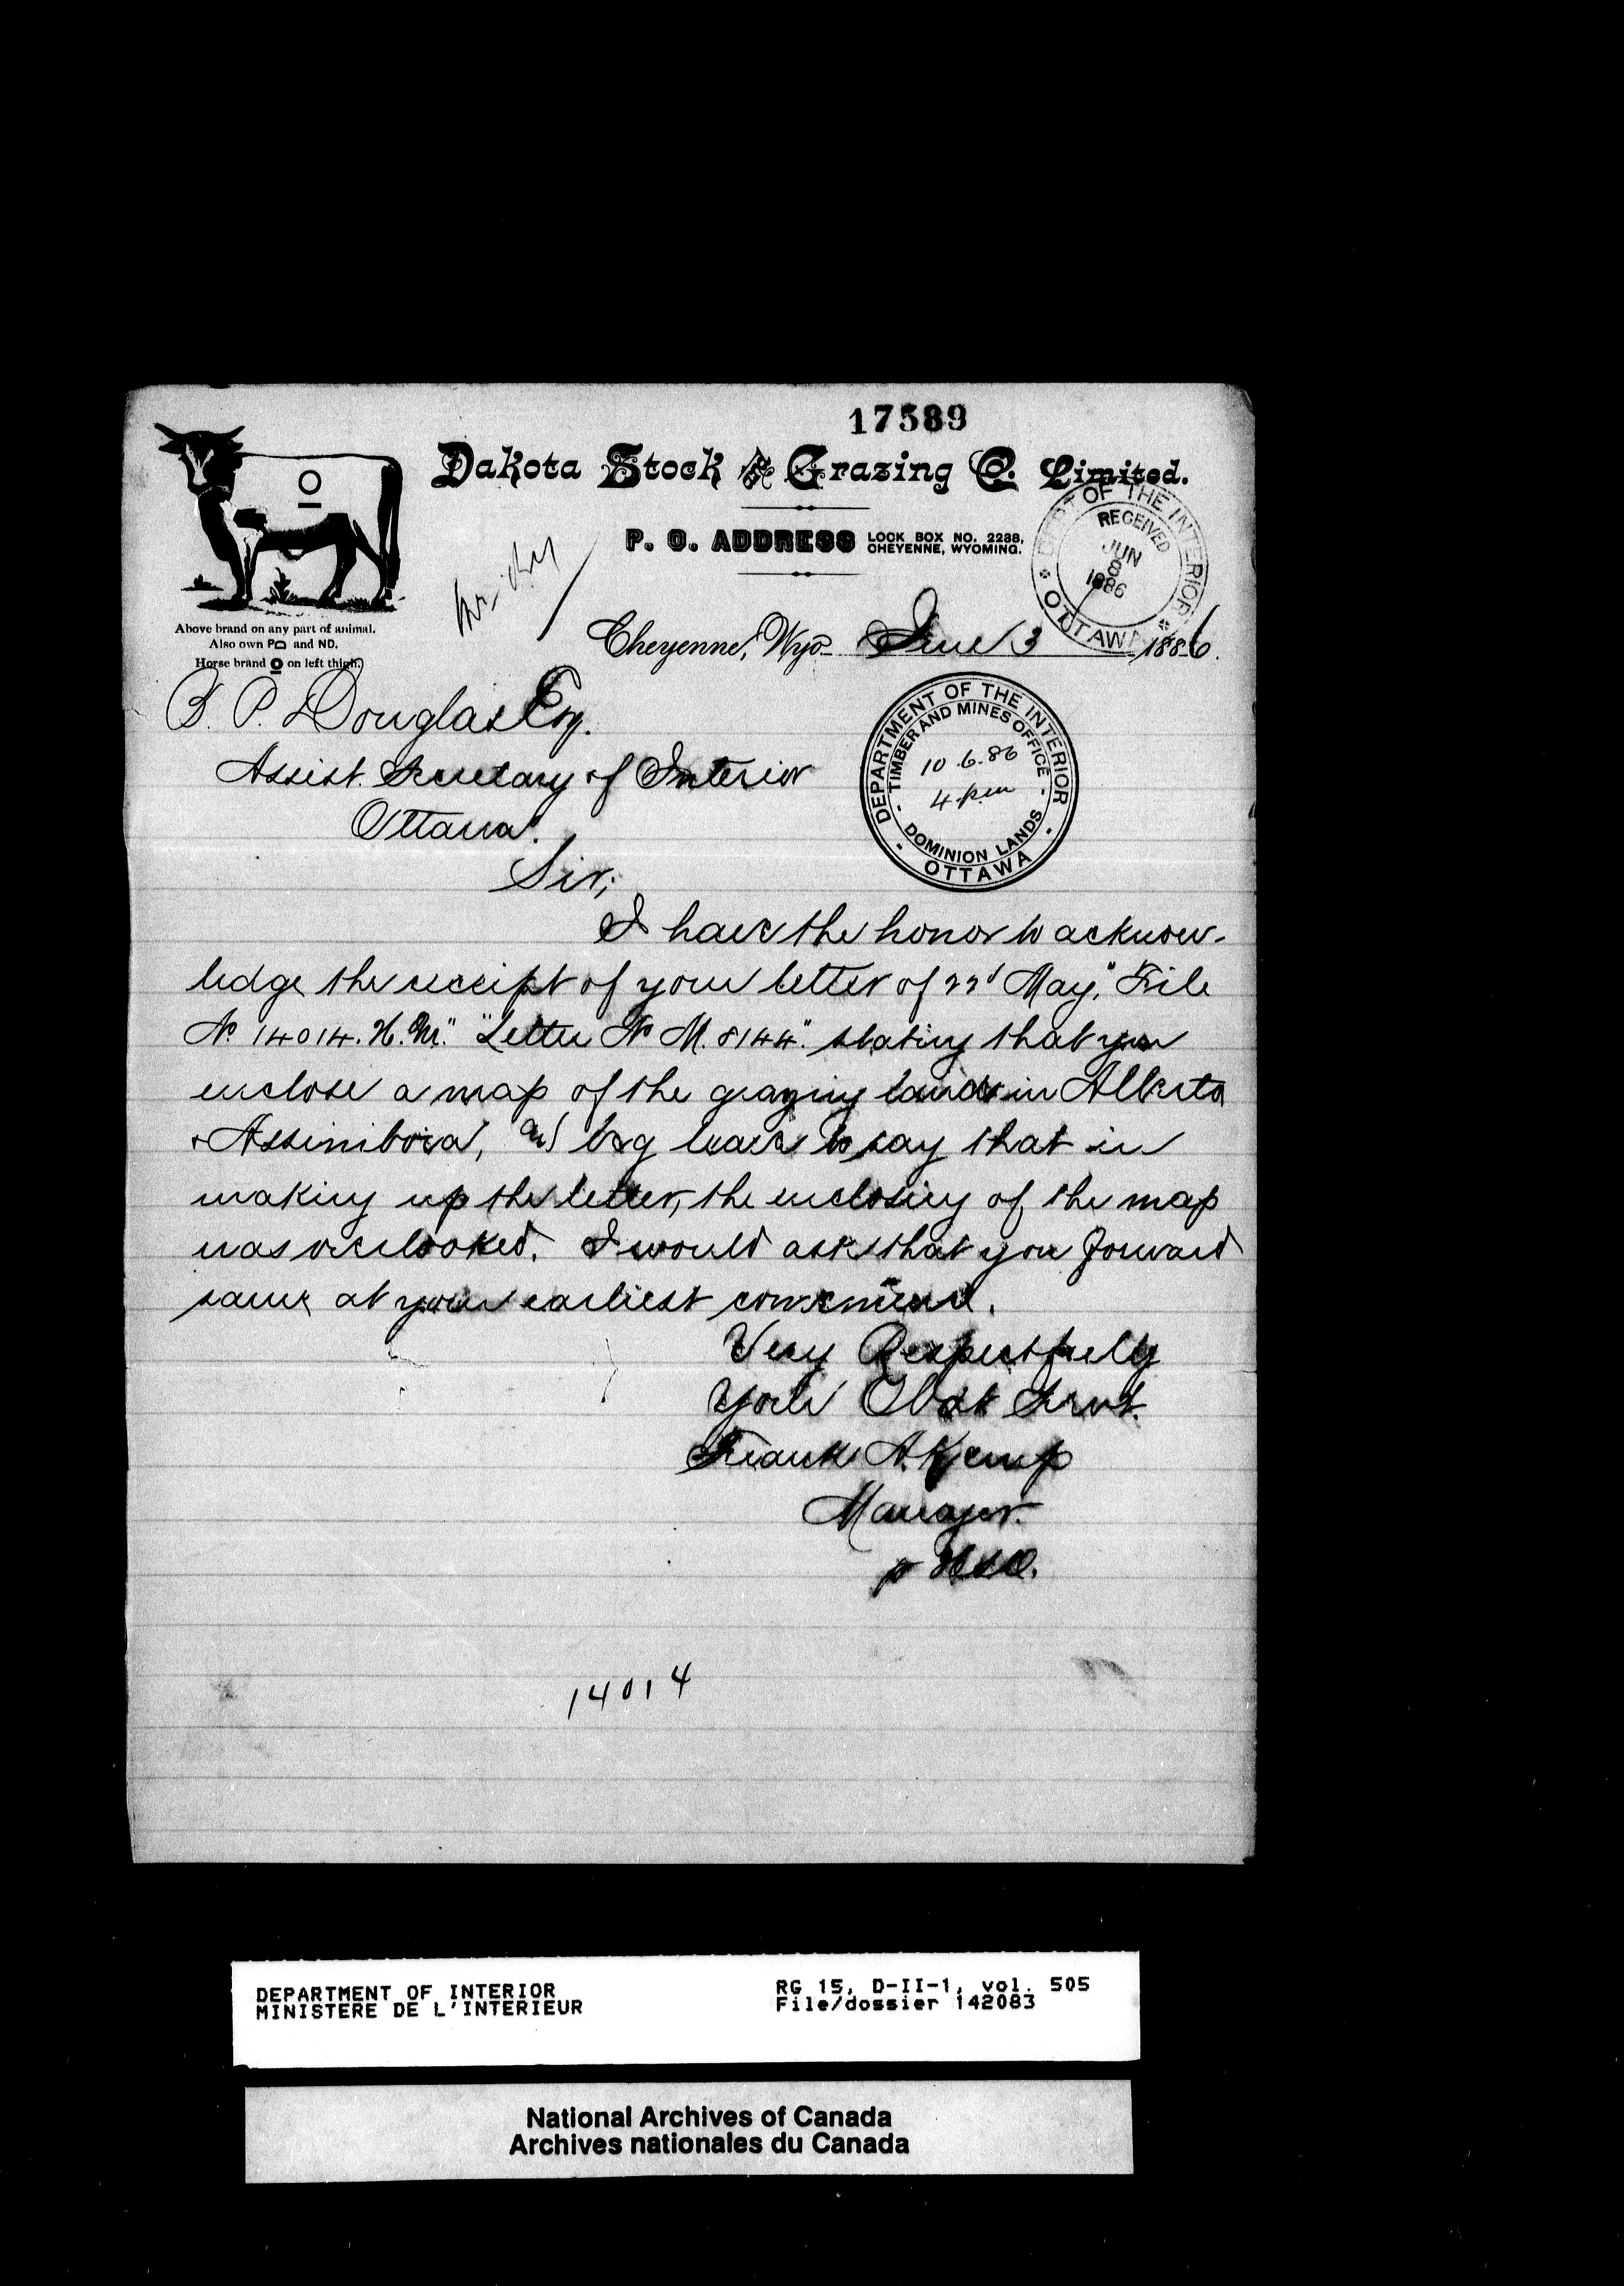 17589
Dakota Stock and Grazing Co. Limited.
P. O. ADDRESS LOCK BOX NO. 2238, CHEYENNE, WYOMING.
DEPT OF THE INTERIOR
RECEIVED
JUN
8
1886
OTTAWA
Above brand on any part of animal.
Also own PD and ND.
Horse brand O on left thigh.
Cheyenne, Wyo. June 3 1886.
B. P. Douglas Esq.
Assist. Secretary of Interior
Ottawa.
DEPARTMENT OF THE INTERIOR
TIMBER AND MINES OFFICE
10.6.86
4 pm
DOMINION LANDS
OTTAWA
Sir;
I have the honor to acknow-
ledge the receipt of your letter of 22d May, "File
No. 14014. H.M." "Letter No M. 8144" stating that you
enclose a map of the grazing lands in Alberta
& Assiniboia, and beg leave to say that in
making up the letter, the enclosing of the map
was overlooked. I would ask that you forward
same at your earliest convenience.
Very Respectfully
Your Obdt Servt.
Frank A. Kemp
Manager.
14014
DEPARTMENT OF INTERIOR
MINISTERE DE L'INTERIEUR
RG 15, D-II-1, vol. 505
File/dossier 142083
National Archives of Canada
Archives nationales du Canada